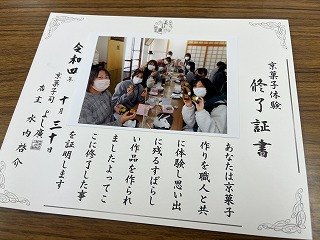 京菓子体験
修了証書
あなたは京菓子
作りを職人と共
に体験し思い出
に残るすばらし
い作品を作られ
ましたよってこ
こに修了した事
を証明します
令和四年 十月 三十日
京菓子司 よし廣
店主 水内啓介